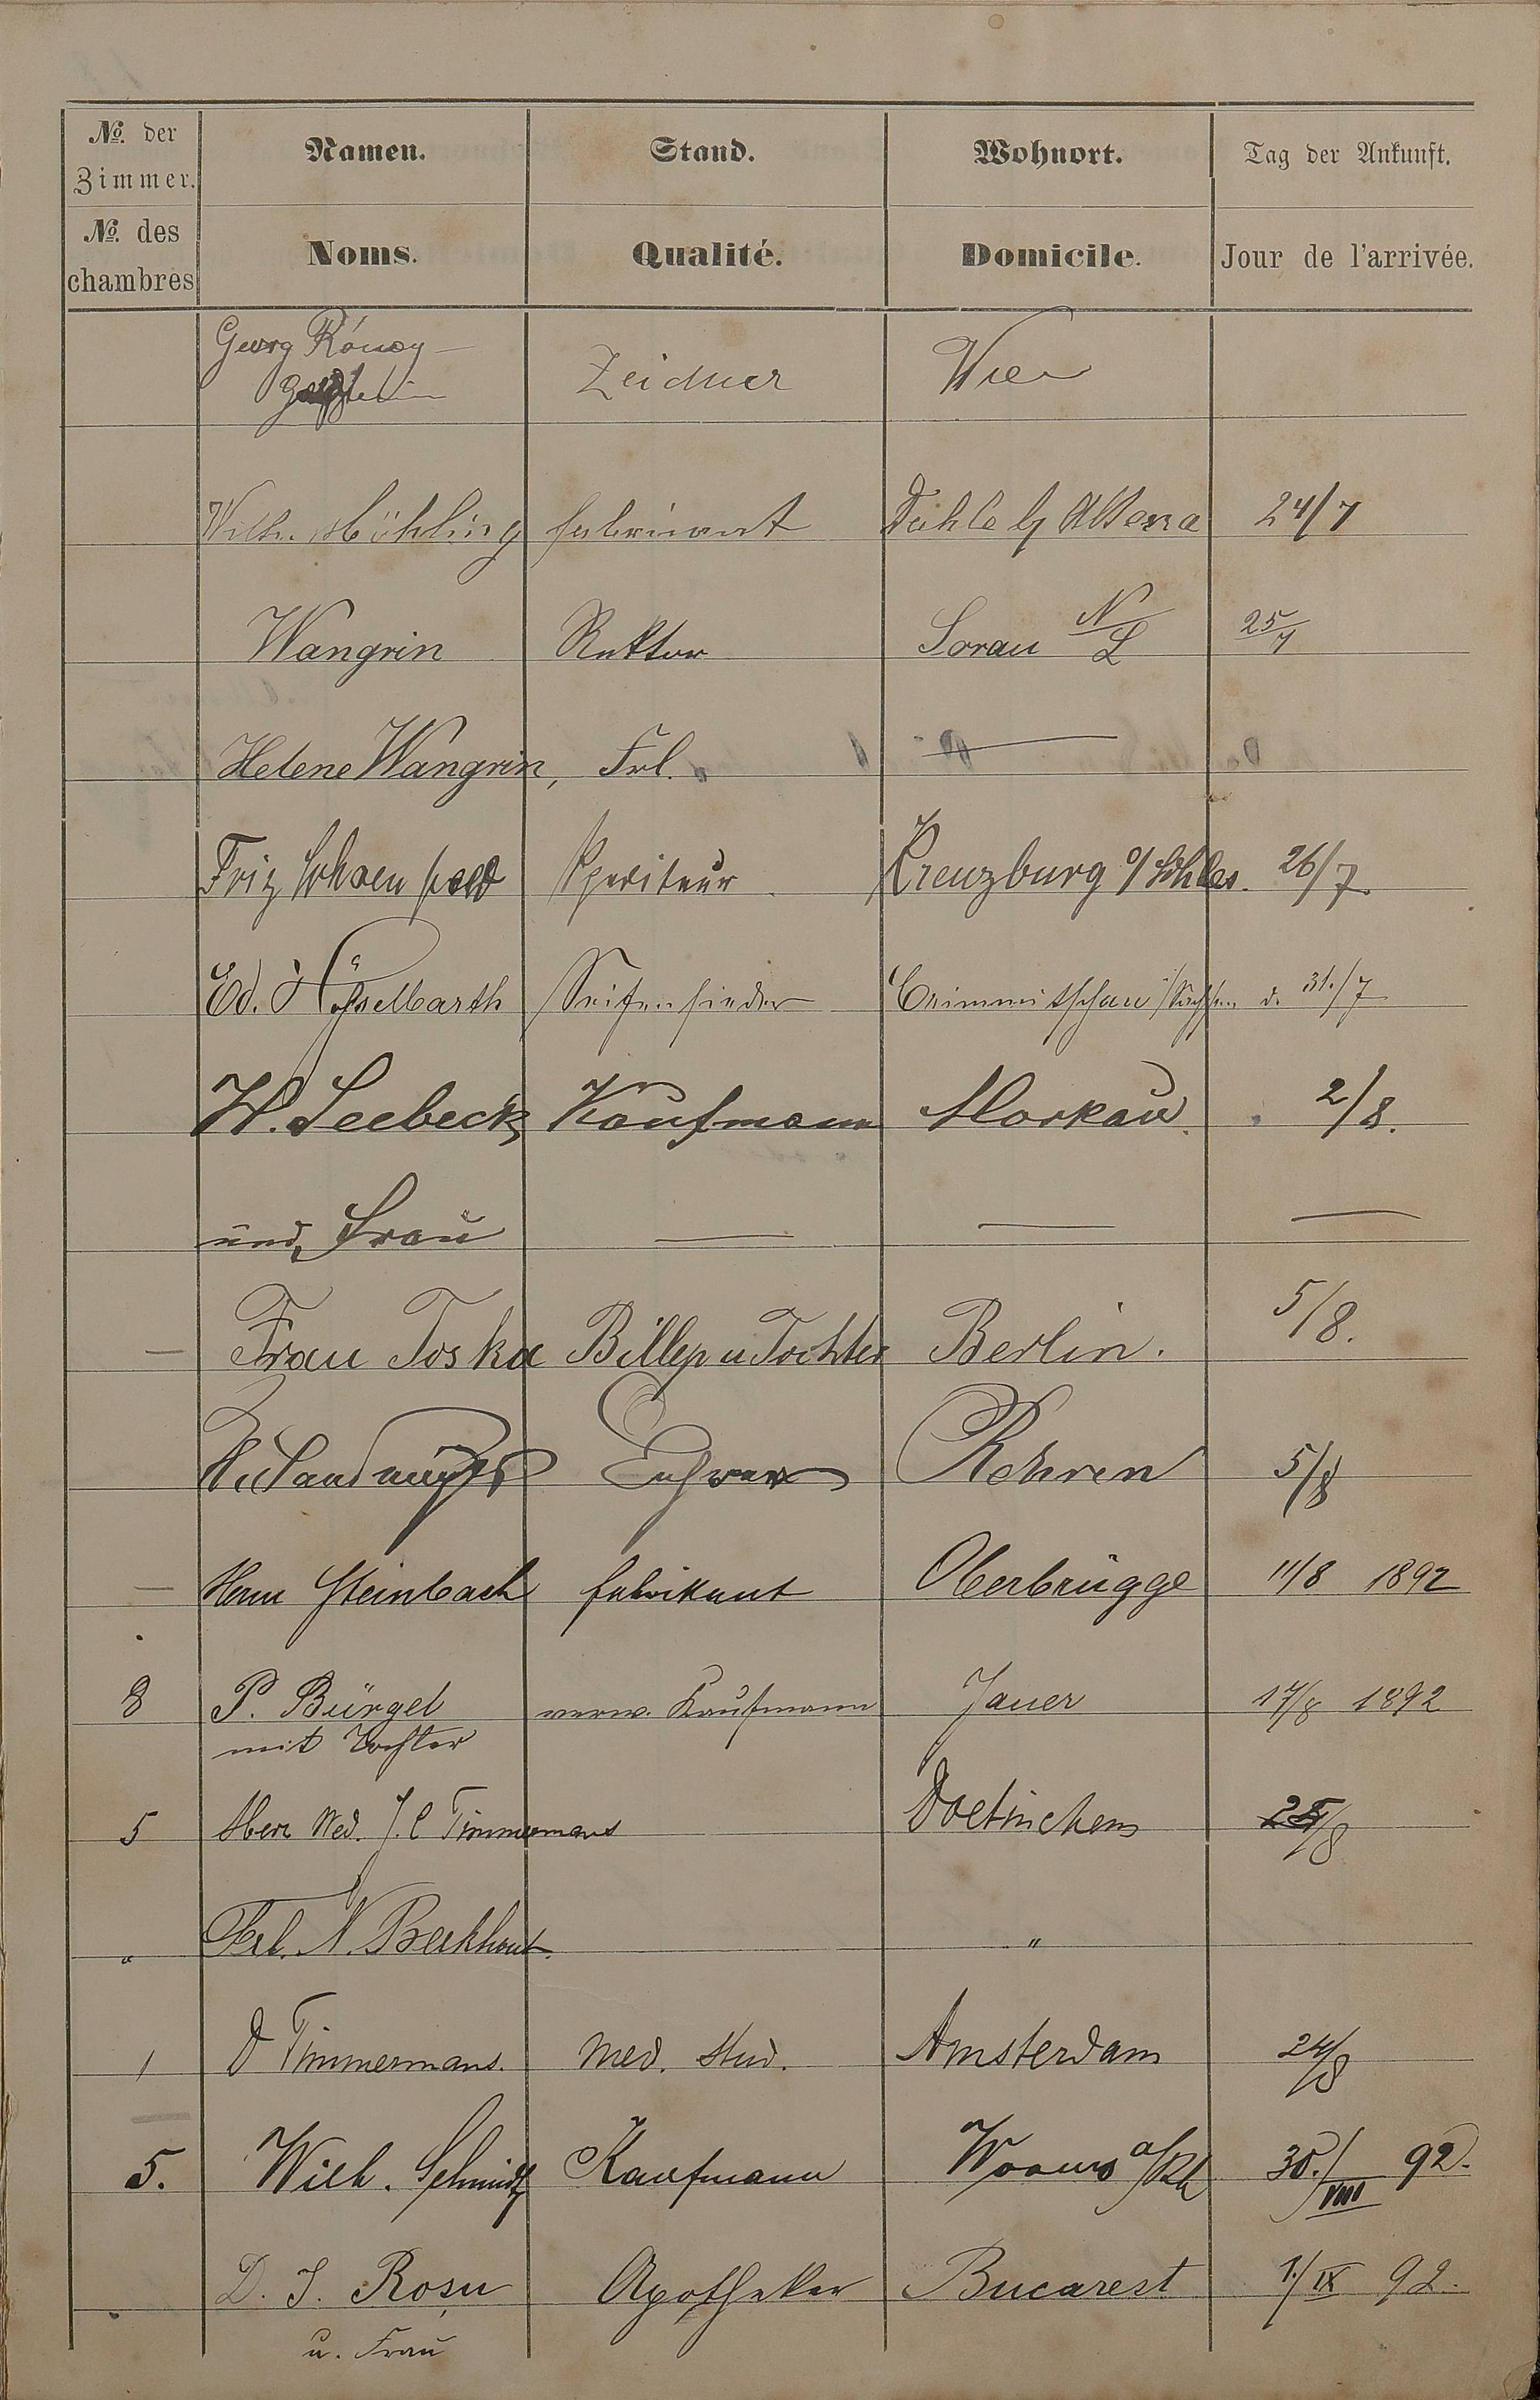 №. der Zimmer. Namen. Stand. Wohnort. Tag der Ankunft.
№. des chambres Noms. Qualité. Domicile. Jour de l'arrivée.
Georg Rónay Zeichner Wien
Wilh. Möhling Fabricant Dahle b/ Altena 24/7
Wangrin Rektor Sorau N/L 25/7
Helene Wangrin, Frl. —
Friz Schoenfeld Spediteur Kreuzburg o/ Schles. 26/7
Ed. Häßselbarth Seifensieder Crimmitschau i/Sachsen d. 31./7
W. Seebeck Kaufmann Moskau 2/8.
und Frau — — —
— Frau Toska Billep u Tochter Berlin. 5/8.
Rohren 5/8
— Herm Steinbach Fabrikant Oberbrügge 11/8 1892
8 P. Bürgel verw. Kaufmann Jauer 17/8 1892
mit Tochter
5 Wed. J. C Timmermans Doetinchem 25/8
" Frl. N. Berkhout. "
1 D Timmermans. Med. Stud. Amsterdam 24/8
5. Wilh. Schmidt Kaufmann Worms a/Rh 30./VIII 92.
D. J. Roșu Apotheker Bucarest 1./IX 92.
u. Frau